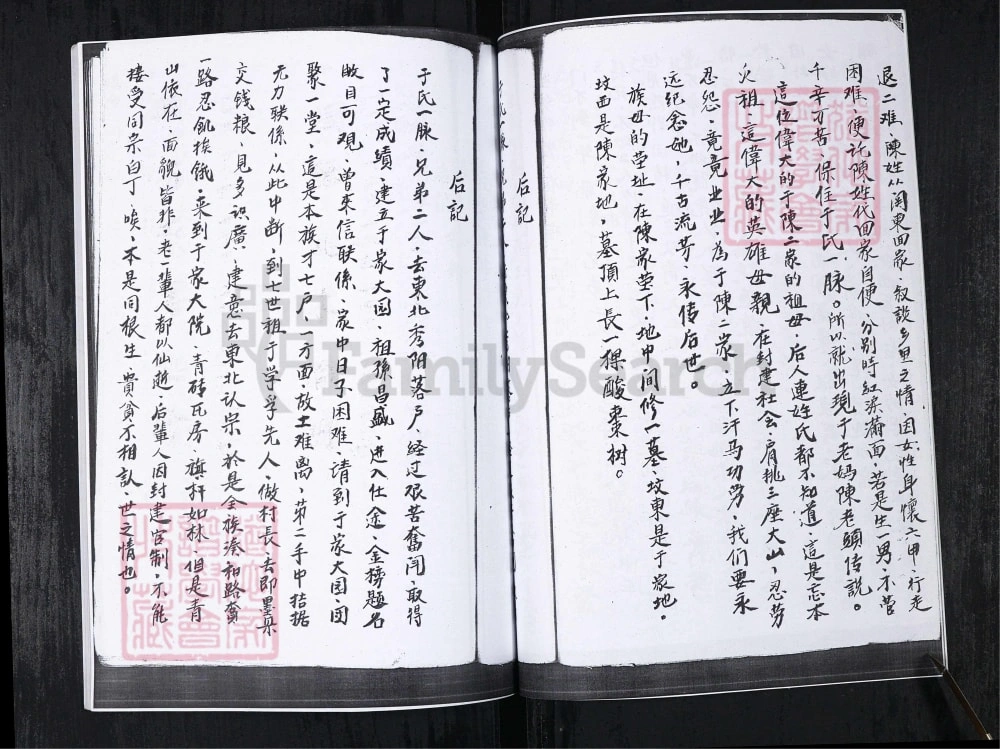 退二难、陳姓从関東回家、叙談乡里之情、因女性身懷六甲、行走
困难、便託陳姓代回家自便、分别時紅淚滿面、若是生一男、不管
千辛万苦、保住于氏一脉。所以就出現于老妈陳老頭传説。
這位偉大的于陳二家的祖母、后人連姓氏都不知道、這是忘本
欠祖、這偉大的英雄母親、在封建社会、肩挑三座大山、忍劳
忍怨、竟竟业业、為于陳二家、立下汗马功劳、我们要永
远纪念她、千古流芳、永传后世。
族母的茔址、在陳家茔下、地中间修一墓、坟東是于家地、
坟西是陳家地、墓頂上長一棵酸棗树。
后記
后記
于氏一脉、兄弟二人、去東北秀阳落户、经过艰苦奮闘、取得
了一定成績、建立于家大园、祖孫昌盛、进入仕途、金榜题名
敞目可观、曾来信联係、家中日子困难、请到于家大园、团
聚一堂、這是本族才七户、一方面、故土难离、第二手中拮据
无力联係、从此中断、到七世祖于学孚先人、做村長、去即墨
交钱粮、見多识廣、建意去東北认宗、於是全族湊和路費
一路忍飢挨饿、来到于家大院、青砖瓦房、旗杆如林、但是青
山依在、面貌皆非、老一輩人都以仙遊、后輩人因封建官制、不能
接受同宗白丁、唉、本是同根生、貴貧不相认、世之情也。
FamilySearch